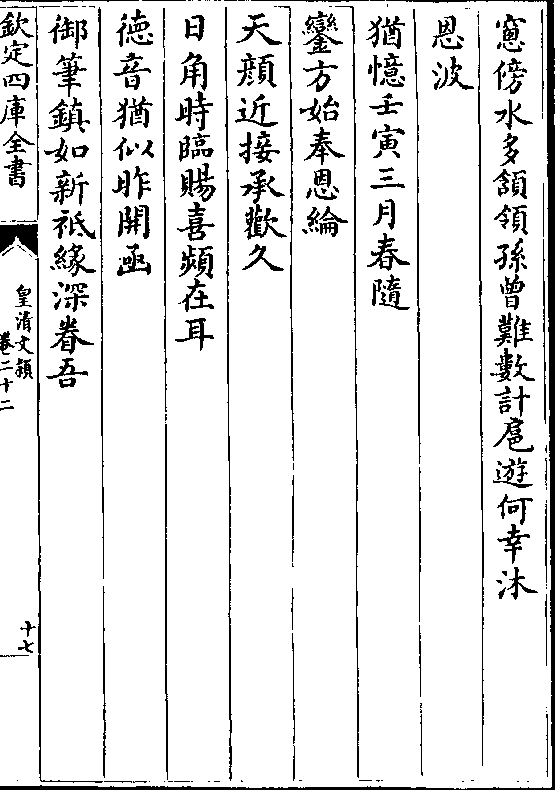 窻傍水多頷領孫曾難數計扈遊何幸沐
恩波
猶憶壬寅三月春隨
鑾方始奉恩綸
天顔近接承歡久
日角時臨賜喜頻在耳
徳音猶似昨開函
御筆鎮如新祇緣深眷吾
欽定四庫全書
皇清文頴
卷二十二
十七